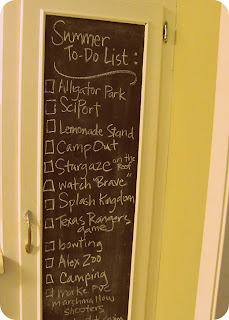 Summer
To-Do List:
Alligator Park
SciPort
Lemonade Stand
Camp Out
Stargaze on the Roof
Watch "Brave"
Splash Kingdom
Texas Rangers
Game
bowling
Alex Zoo
Camping
make PVC
marshmallow
shooters